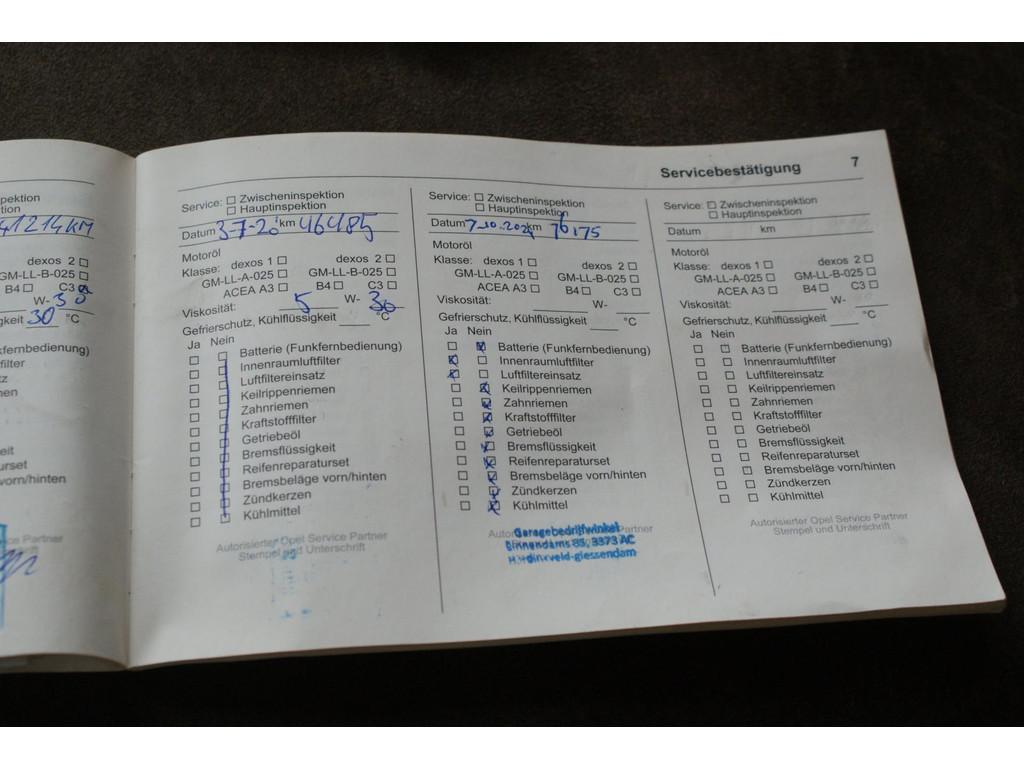 nspektion
tion
41214KM
dexos 2
GM-LL-B-025
B4 C3
W- 30
gkeit 30 °C
kfernbedienung)
filter
tz
men
eit
urset
vorn/hinten
ce Partner
Servicebestätigung 7
Service: Zwischeninspektion
Hauptinspektion
Datum 3-7-20 km 46485
Motoröl
Klasse: dexos 1 dexos 2
GM-LL-A-025 GM-LL-B-025
ACEA A3 B4 C3
Viskosität: 5 W- 30
Gefrierschutz, Kühlflüssigkeit °C
Ja Nein
Batterie (Funkfernbedienung)
Innenraumluftfilter
Luftfiltereinsatz
Keilrippenriemen
Zahnriemen
Kraftstofffilter
Getriebeöl
Bremsflüssigkeit
Reifenreparaturset
Bremsbeläge vorn/hinten
Zündkerzen
Kühlmittel
Autorisierter Opel Service Partner
Stempel und Unterschrift
Service: Zwischeninspektion
Hauptinspektion
Datum 7-10-202 km 76175
Motoröl
Klasse: dexos 1 dexos 2
GM-LL-A-025 GM-LL-B-025
ACEA A3 B4 C3
Viskosität: W-
Gefrierschutz, Kühlflüssigkeit °C
Ja Nein
Batterie (Funkfernbedienung)
Innenraumluftfilter
Luftfiltereinsatz
Keilrippenriemen
Zahnriemen
Kraftstofffilter
Getriebeöl
Bremsflüssigkeit
Reifenreparaturset
Bremsbeläge vorn/hinten
Zündkerzen
Kühlmittel
Garagebedrijfwinkel Partner
Binnendams 85, 3373 AC
giessendam
Service: Zwischeninspektion
Hauptinspektion
Datum km
Motoröl
Klasse: dexos 1 dexos 2
GM-LL-A-025 GM-LL-B-025
ACEA A3 B4 C3
Viskosität: W-
Gefrierschutz, Kühlflüssigkeit °C
Ja Nein
Batterie (Funkfernbedienung)
Innenraumluftfilter
Luftfiltereinsatz
Keilrippenriemen
Zahnriemen
Kraftstofffilter
Getriebeöl
Bremsflüssigkeit
Reifenreparaturset
Bremsbeläge vorn/hinten
Zündkerzen
Kühlmittel
Autorisierter Opel Service Partner
Stempel und Unterschrift